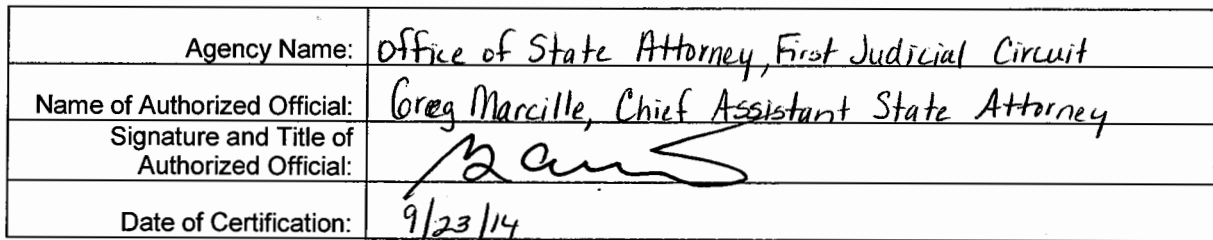 Agency Name: Office of State Attorney, First Judicial Circuit
Name of Authorized Official: Greg Marcille, Chief Assistant State Attorney
Signature and Title of
Authorized Official:
Date of Certification: 9/23/14